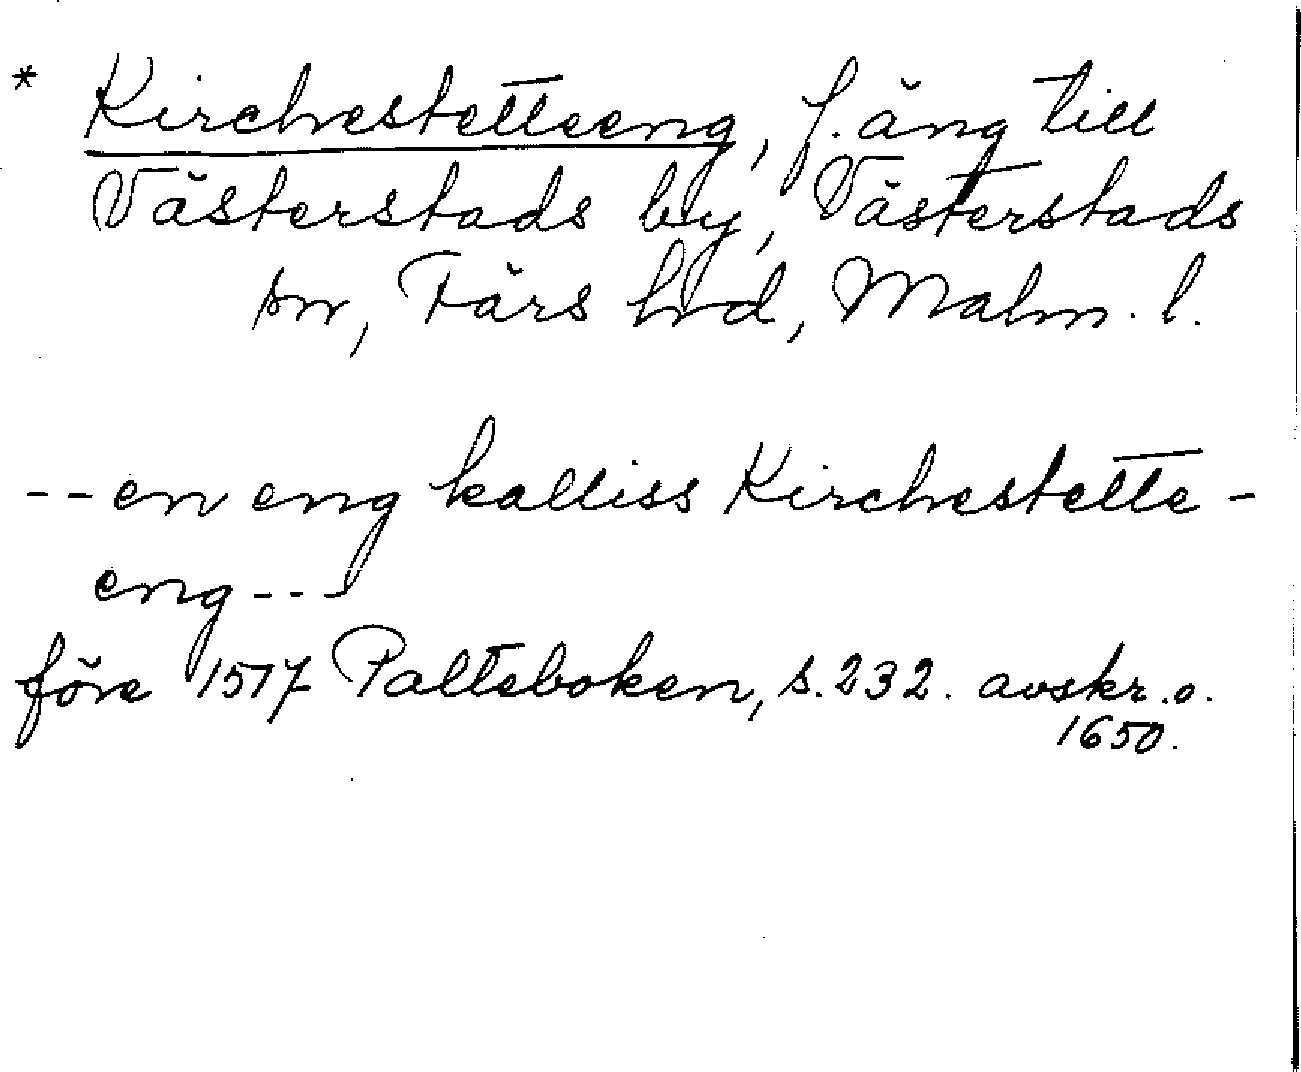 * Kirchestetteeng, f. äng till
Västerstads by, Västerstads
sn, Färs hrd, Malm. l.
-- en eng kalliss Kirchestette-
eng ---
före 1517 Palteboken, s. 232. avskr. o.
1650.